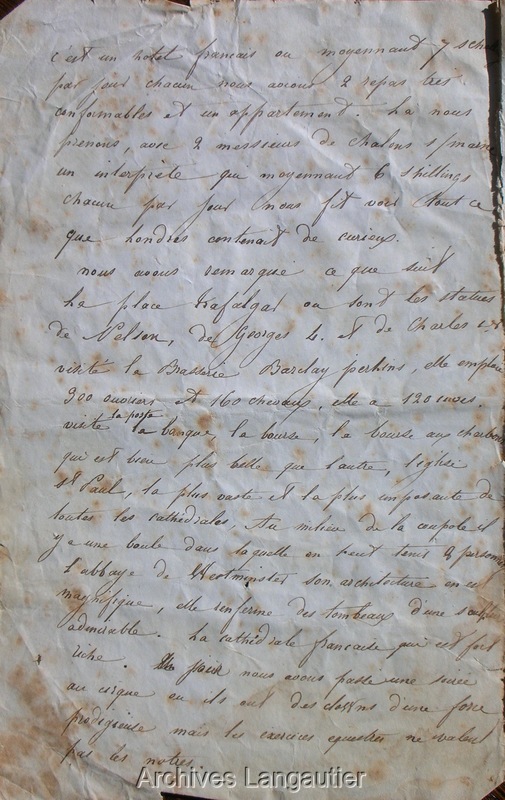 c'est un hotel francais ou moyennant 7 sch
par jour chacun nous avions 2 repas tres
confortables et un appartement. La nous
prenons, avec 2 messieurs de Chalons s/marne
un interprète qui moyennant 6 shillings
chacun par jour nous fit voir tout ce
que Londres contenait de curieux.
nous avons remarqué ce que suit
La place trafalgar ou sont les statues
de Nelson, de Georges 4. et de Charles 1er
visité la Brasserie Barclay perkins, elle emploie
300 ouvriers et 160 chevaux, elle a 120 cuves.
visité la poste la banque, la bourse, la bourse aux charbons
qui est bien plus belle que l'autre, l'église
St Paul, la plus vaste et la plus imposante de
toutes les cathédrales. Au milieu de la coupole il
y a une boule dans laquelle on peut tenir 8 personnes
L'abbaye de Westminster son architecture en est
magnifique, elle renferme des tombeaux d'une sculpture
admirable. La cathédrale francaise qui est fort
riche. nous avons passé une soirée
au cirque ou ils ont des clowns d'une force
prodigieuse mais les exercices equestres ne valent
pas les notres.
Archives Langautier